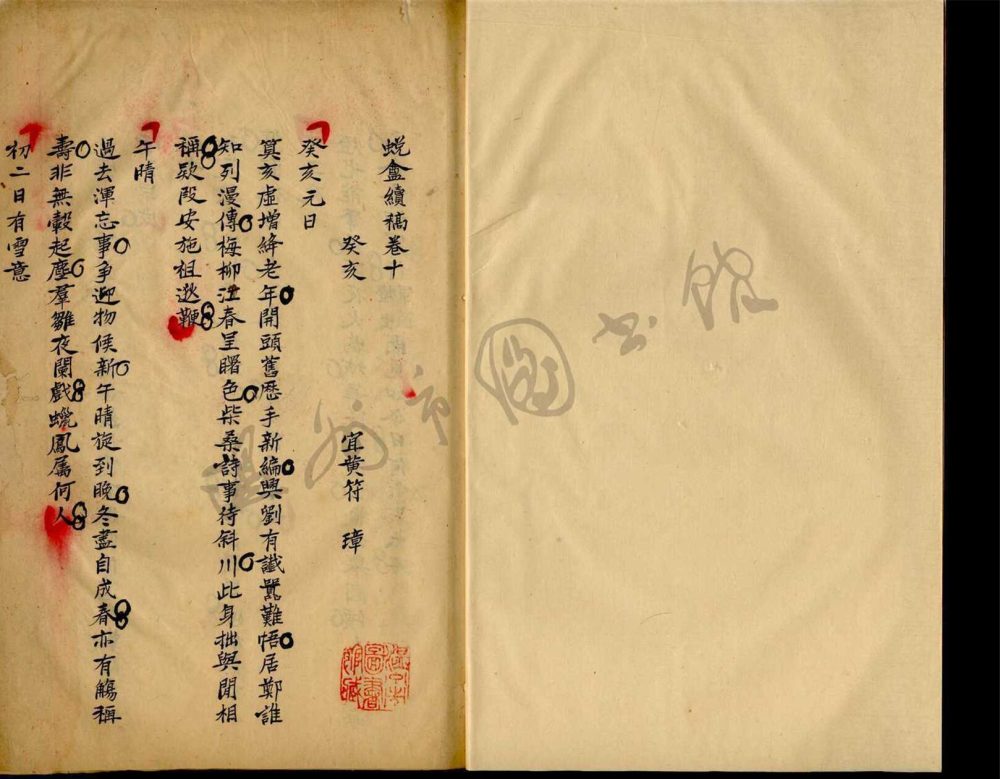 蛻盦續稿卷十
癸亥
宜黃符 璋
癸亥元日
算亥虛增絳老年開頭舊歷手新編興劉有讖嚚難悟居鄭誰
知列漫傳梅柳江春呈曙色柴桑詩事待斜川此身拙與閒相
稱欵段安施祖逖鞭
午晴
過去渾忘事爭迎物候新午晴旋到晚冬盡自成春亦有觴稱
壽非無轂起塵羣雛夜闌戲蠟鳳屬何人
初二日有雪意
溫州市圖書館
溫州市圖書館藏